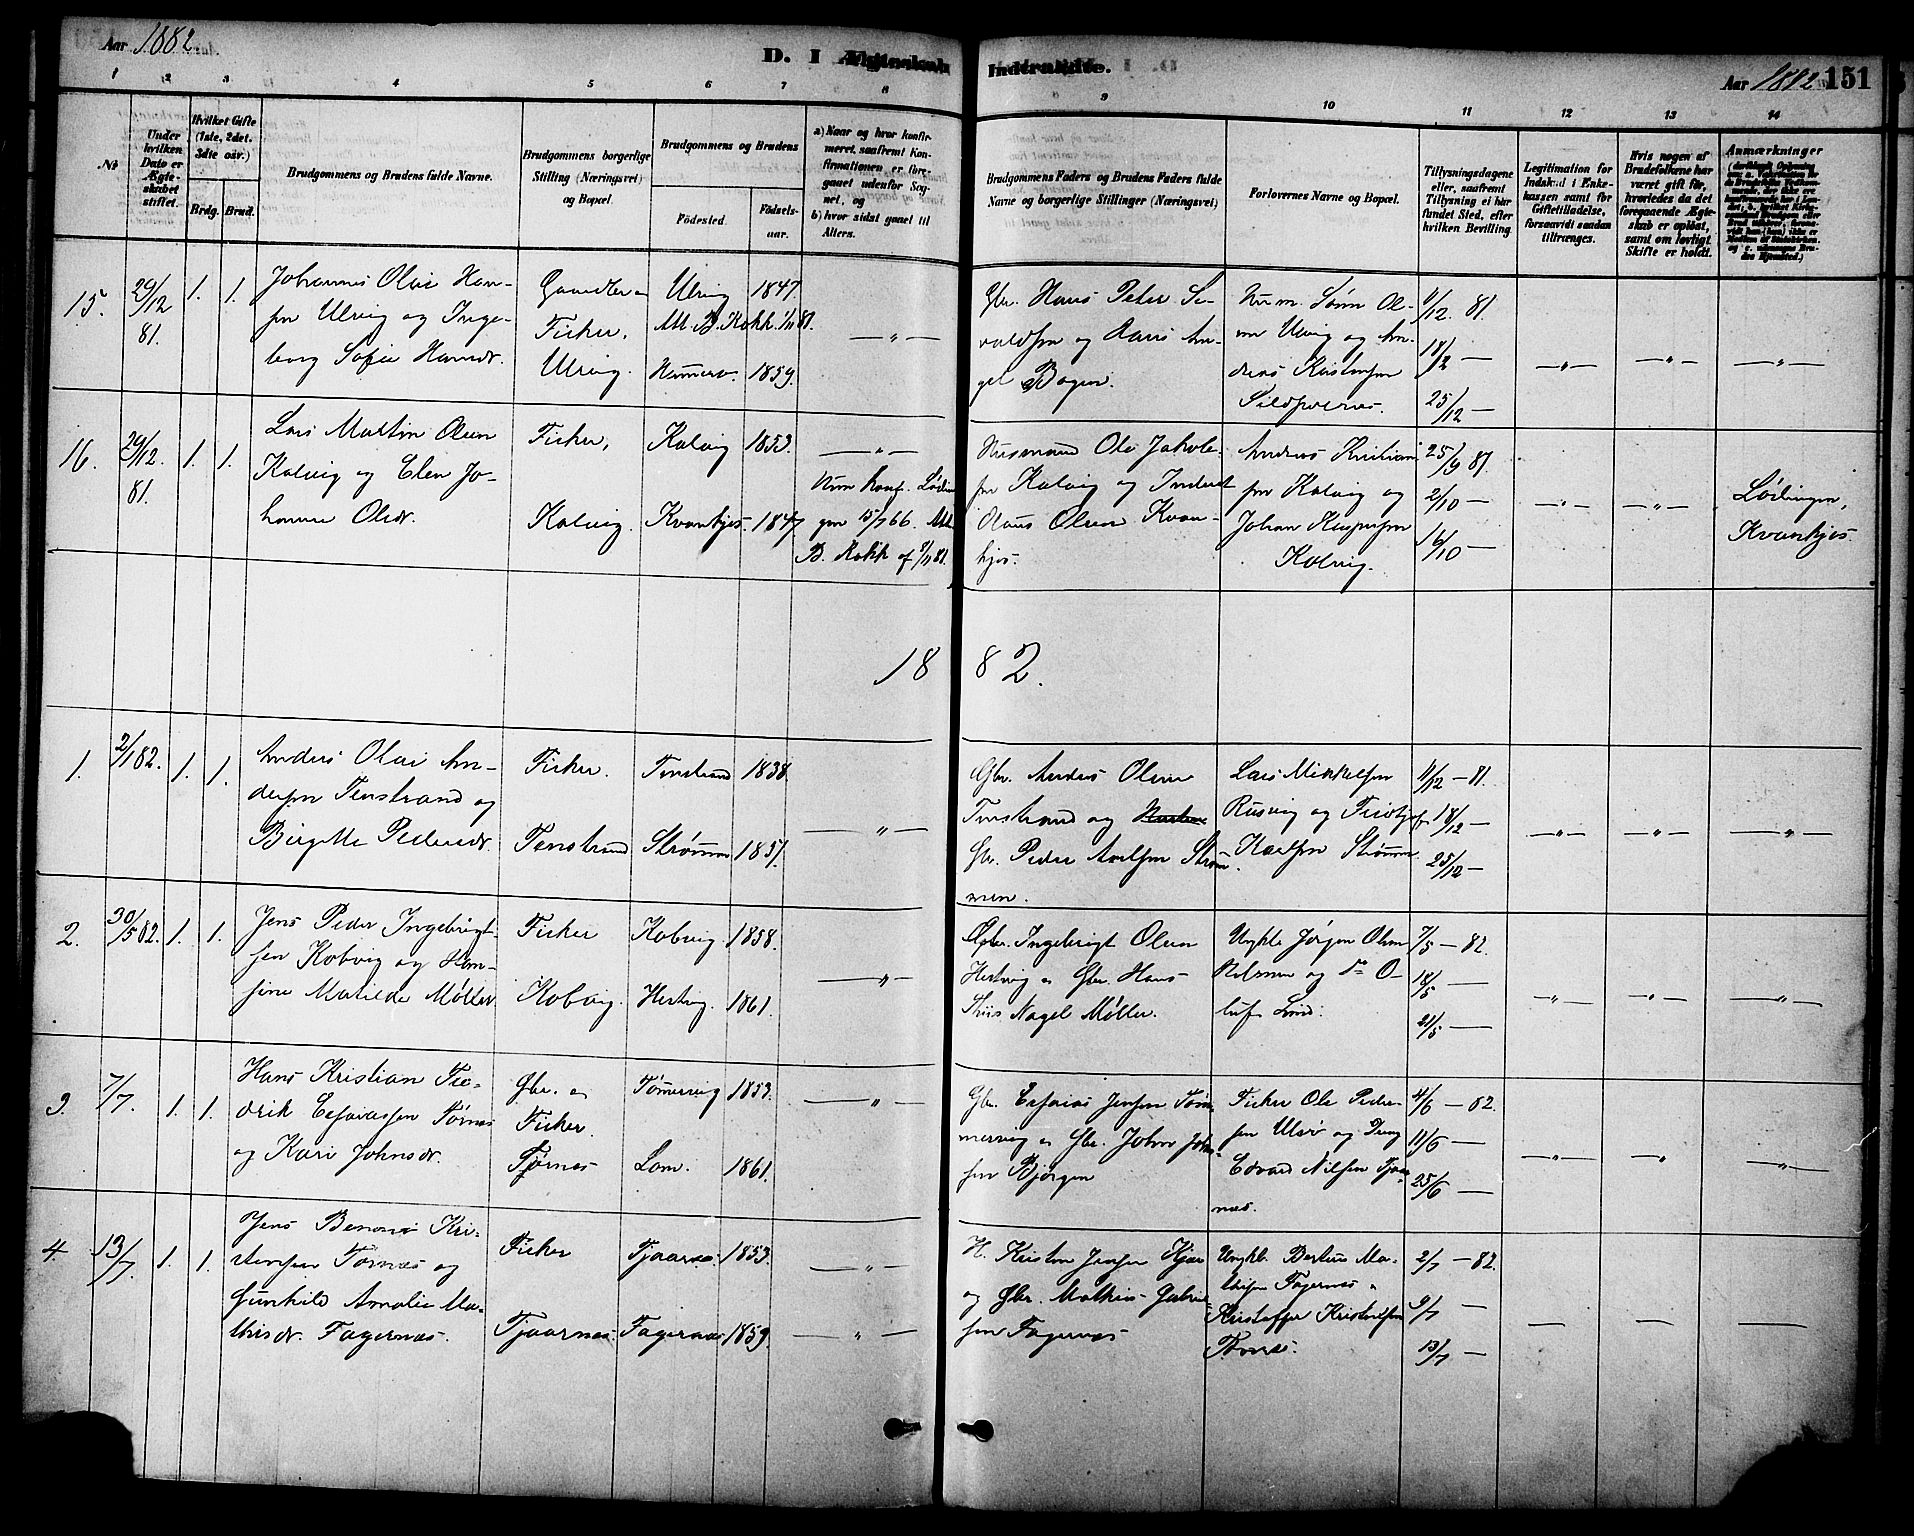 Aar 1882.
D. I Ægteskab
Indtraadte.
Aar 1882
151
1 2 3 4 5 6 7 8 9 10 11 12 13 14
№
Under hvilken Dato er Ægteskabet stiftet.
Hvilket Gifte (1ste, 2det, 3die osv.)
Brdg. Brud.
Brudgommens og Brudens fulde Navne.
Brudgommens borgerlige Stilling (Næringsvei) og Bopæl.
Brudgommens og Brudens
Fødested. Fødselsaar.
a) Naar og hvor konfirmeret, saafremt Konfirmationen er foregaaet udenfor Sognet, og
b) hvor sidst gaaet til Alters.
Brudgommens Faders og Brudens Faders fulde Navne og borgerlige Stillinger (Næringsvei)
Forlovernes Navne og Bopæl.
Tillysningsdagene eller, saafremt Tillysning ei har fundet Sted, efter hvilken Bevilling.
Legitimation for Indskud i Enkekassen samt for Giftetilladelse, forsaavidt saadan tiltrænges.
Hvis nogen af Brudefolkene har været gift før, hvorledes da det foregaaende Ægteskab er opløst, samt om lovligt Skifte er holdt.
Anmærkninger
15. 29/12 81. 1. 1.
Johannes Olai Han-
sen Ulvig og Inge-
borg Sofie Hansdr.
Gaardbr. &
Fisker,
Ulvig.
Ulvig 1847.
Att. B. Kokk. 1/11 81.
Hammerø. 1859.
Gbr. Hans Peter Si-
valdsen og Hans An-
gel Bogen.
Husm. Sören Ol-
sen Ulvig og An-
ders Kristensen
Sildpolnes.
4/12. 81.
18/12 —
25/12 —
16. 29/12. 81. 1. 1.
Lars Martin Olsen
Kalvig og Elen Jo-
hanne Olsdr.
Fisker,
Kalvig.
Kalvig 1853.
Kvankjøs. 1847
Hun konf. Lödin-
gen 15/7 66. Att.
B. Kokk af 1/11 81.
Husmand Ole Jakob-
sen Kalvig og Inderst
Claus Olsen Kvan-
kjøs.
Anders Kristian-
sen Kalvig og
Johan Kaspersen
Kalvig.
25/9 81.
2/10 —
16/10 —
Lödingen,
Kvankjøs.
1882.
1. 2/1 82. 1. 1.
Anders Olai An-
dersen Tenstrand og
Birgitte Pedersdr.
Fisker.
Tenstrand
Tenstrand 1838.
Strømmen 1857.
Gbr. Anders Olsen
Tenstrand og
Gbr. Peder Axelsen Strøm-
men.
Lars Mikkelsen
Rusvig og Fridtjof
Karlsen Strømmen
4/12 — 81.
18/12 —
25/12 —
2. 30/5 82. 1. 1.
Jens Peder Ingebrigt-
sen Kobvig og Han-
sine Matilde Møller.
Fisker
Kobvig.
Kobvig 1858.
Hestvig 1861.
Gbr. Ingebrigt Olsen
Hestvig & Gbr. Hans
Thiis Nagel Møller.
Ungkl. Jørgen Olsen
Holmen og do O-
luf Lind.
7/5 — 82.
18/5 —
21/5 —
3. 7/7. 1. 1.
Hans Kristian Fre-
drik Esaiassen Tørnes
og Kari Johnsdr.
Gbr. &
Fisker.
Tjörnes
Tömmervig 1853.
Lom. 1861.
Gbr. Esaias Jensen Töm-
mervig & Gbr. John John-
sen Bjørgen
Fisker Ole Peder-
sen Ulsö og Dreng
Edvard Nilsen Tjaar-
nes.
4/6 — 82.
11/6 —
25/6 —
4. 13/7. 1. 1.
Jens Benoni Kri-
stensen Tørnes og
Gunhild Amalie Ma-
thisdr. Fagernæs.
Fisker
Tjaarnes.
Tjaarnes. 1853.
Fagernæs 1859.
H. Kristen Jensen Kjær
og Gbr. Mathias Gabriel-
sen Fagernæs
Ungkl. Berteus Ma-
thisen Fagernæs &
Kristoffer Kristensen
Tørnes.
2/7 — 82.
9/7 —
13/7 —